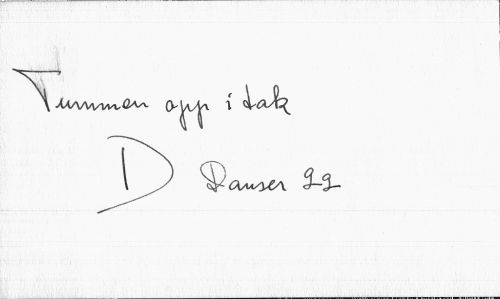 Tummen opp i tak
D Danser 22